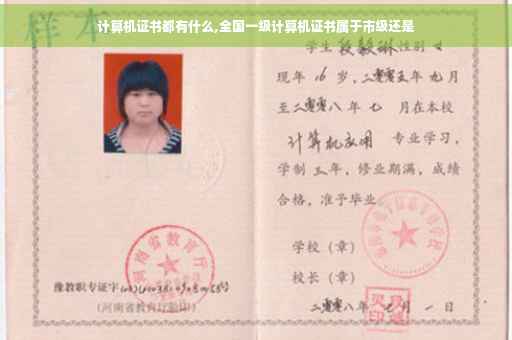 计算机证书都有什么,全国一级计算机证书属于市级还是
样本
学生 段毅琳 性别 女
现年 16 岁，二零零五年 九月
至二零零八年 七 月在本校
计算机应用 专业学习，
学制 三年，修业期满，成绩
合格，准予毕业
学校（章）
校长（章）
二零零八年 七月 一日
河南省教育厅
豫教职专证字
(河南省教育厅验印)